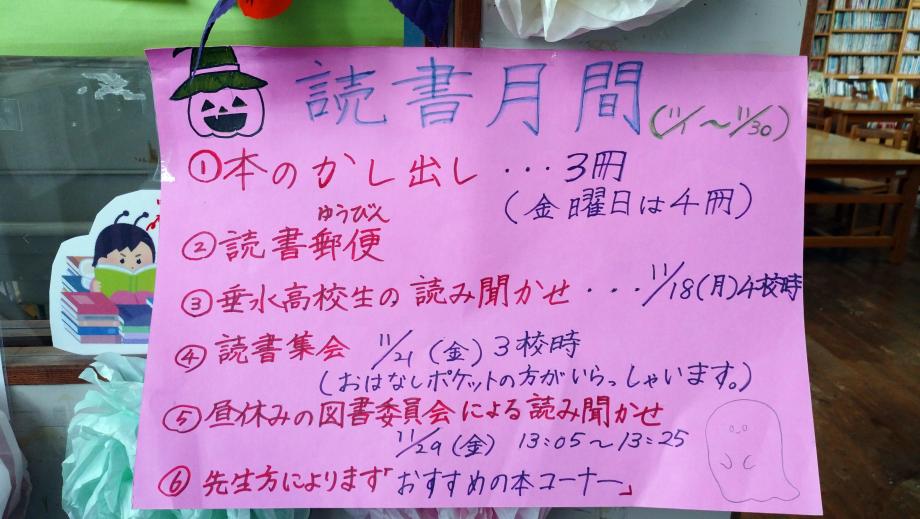 読書月間 (11/1〜11/30)
①本のかし出し ・・・3冊
(金曜日は4冊)
ゆうびん
②読書郵便
③垂水高校生の読み聞かせ ・・・11/18(月)4校時
④読書集会 11/21(金)3校時
(おはなしポケットの方がいらっしゃいます。)
⑤昼休みの図書委員会による読み聞かせ
11/29(金) 13:05〜13:25
⑥先生方によります「おすすめの本コーナー」